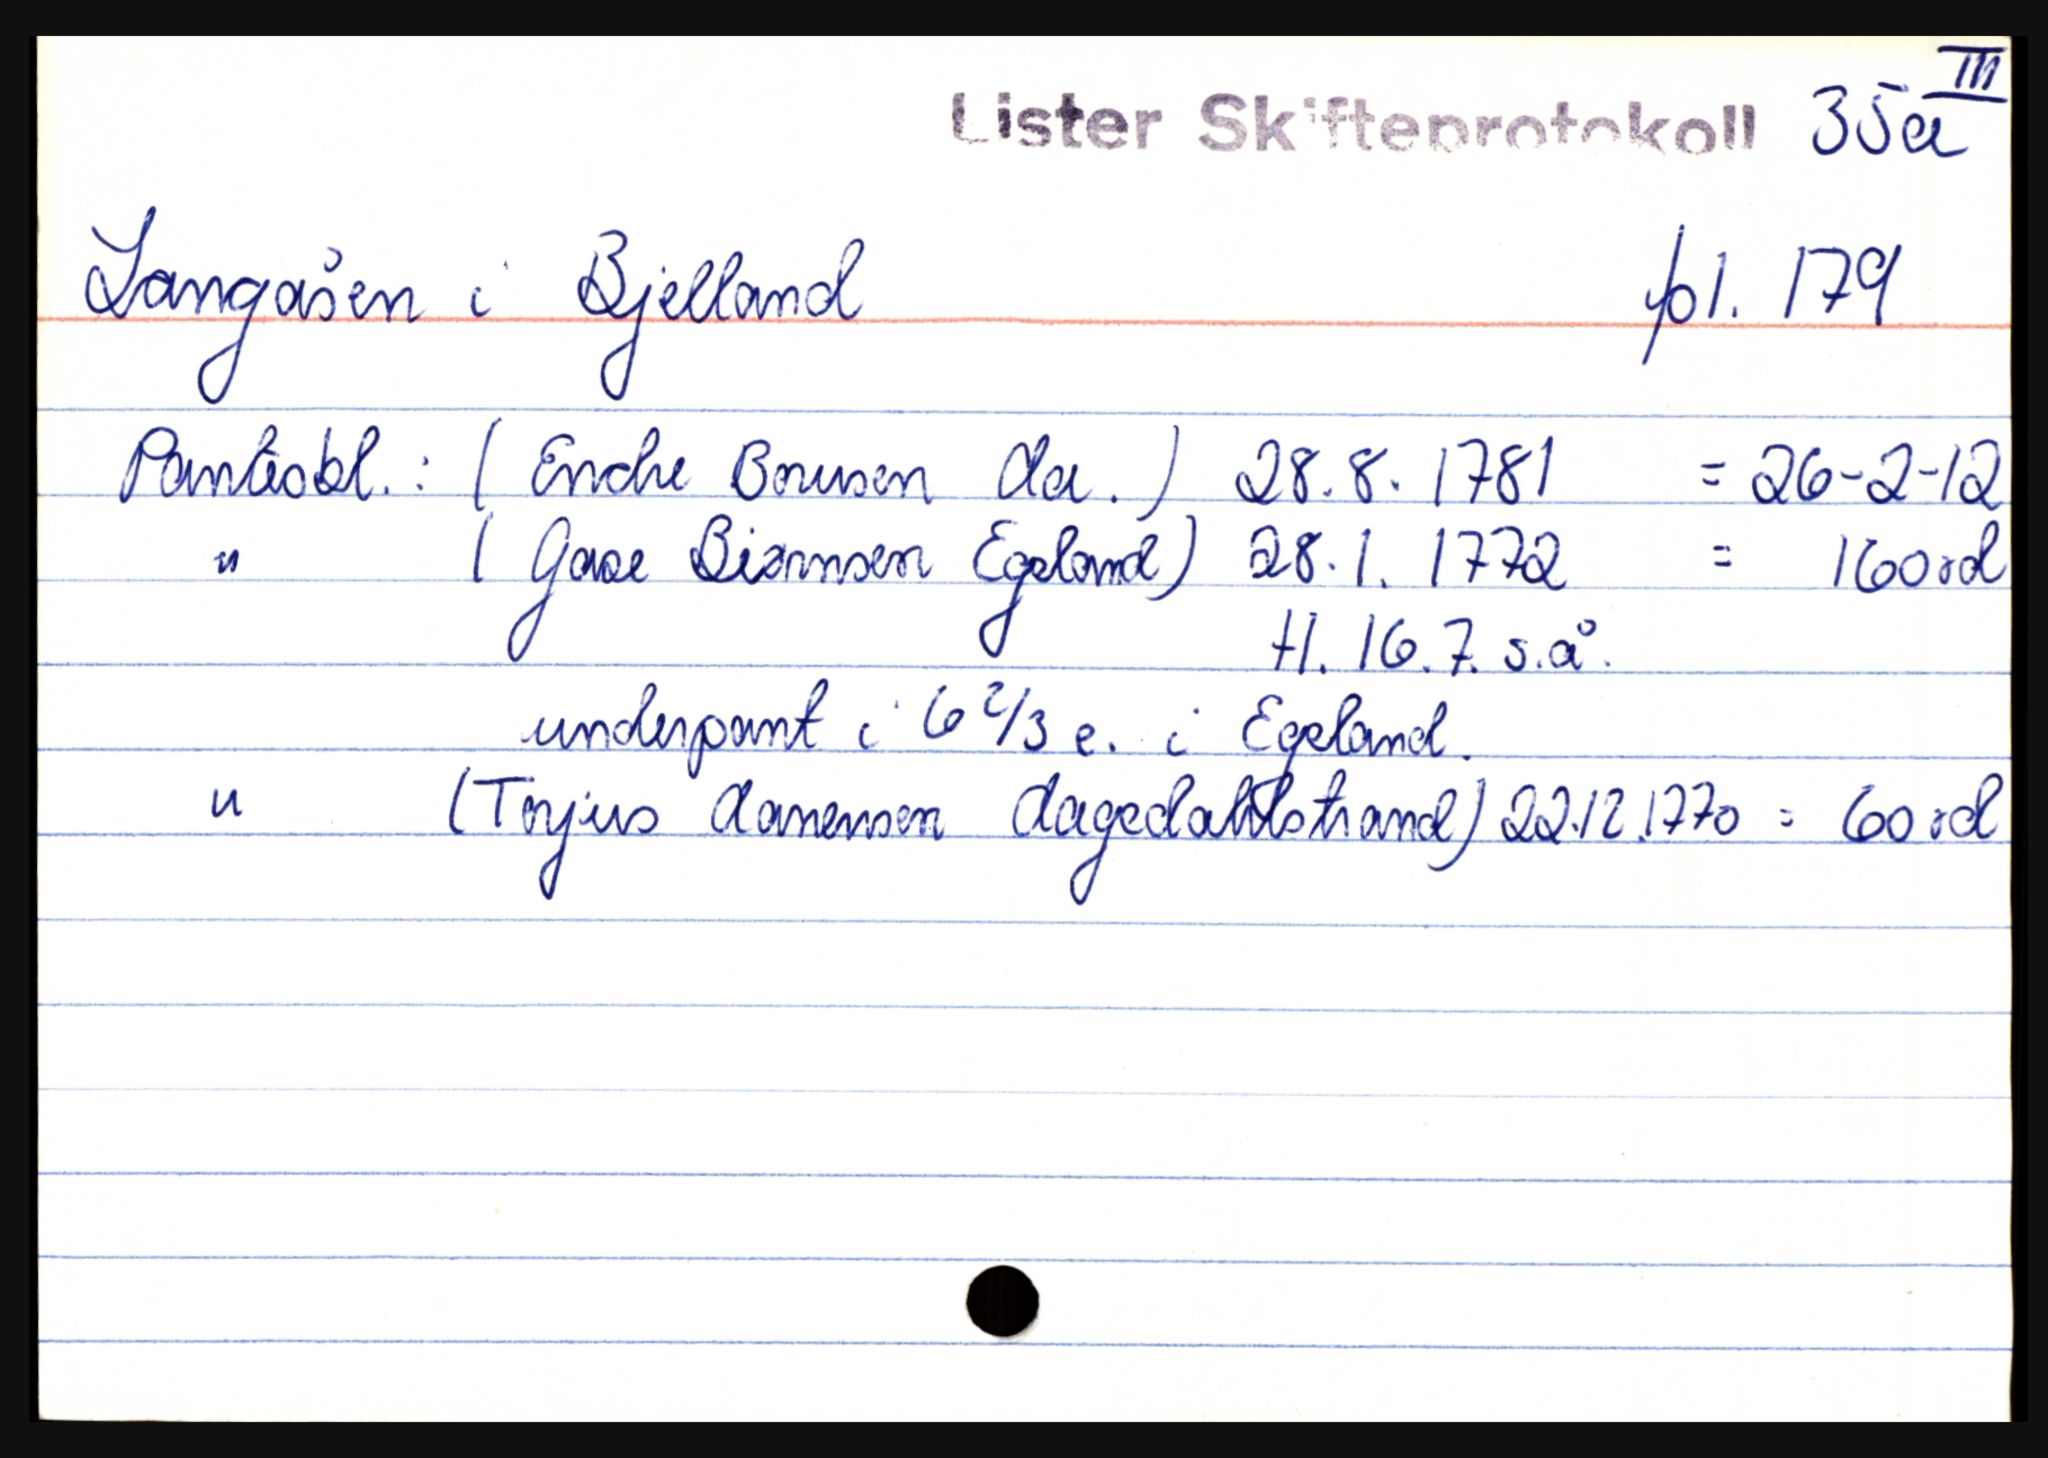 III
Lister Skifteprotokoll 35a
Langåsen i Bjelland fol. 179
Panteobl.: (Endre Borusen da.) 28.8.1781 = 26-2-12
" (Gase Biørnsen Egeland) 28.1.1772 = 160 rd
tl. 16.7. s.å.
underpant i 6 2/3 e. i Egeland.
" (Torjus Aanensen Aagedahlstrand) 22.12.1770 = 60 rd